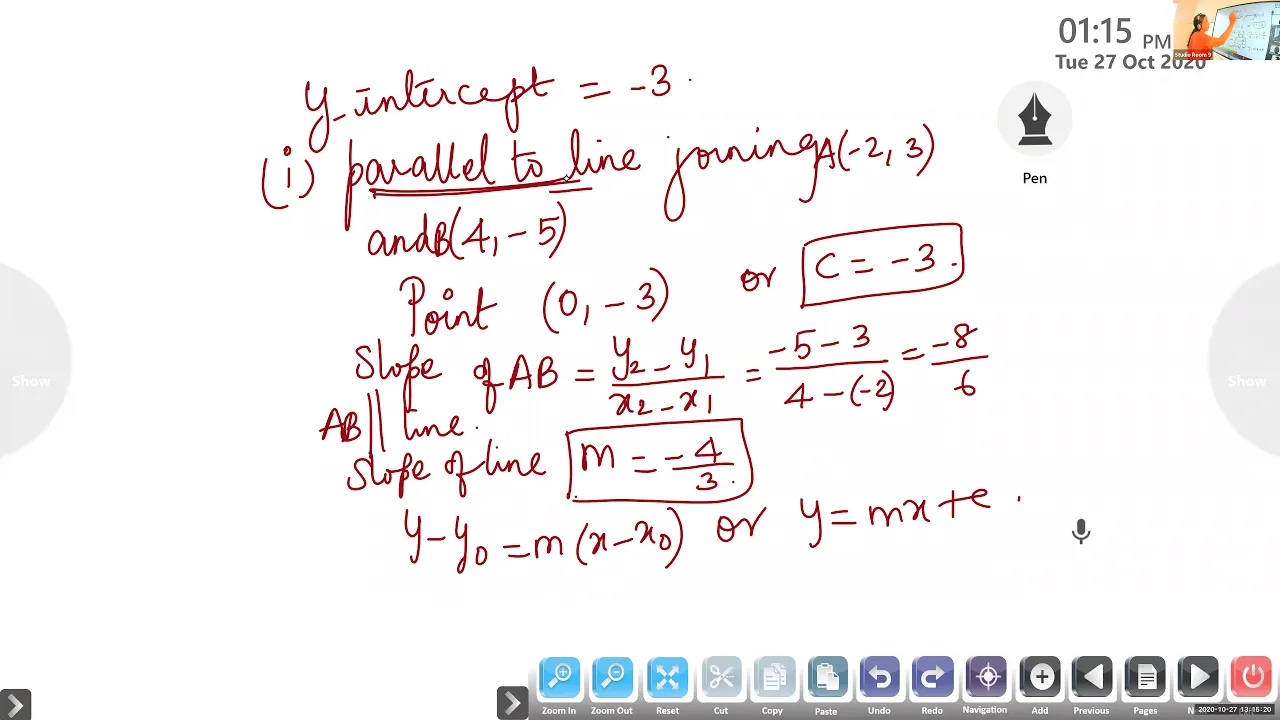 01:15 PM
Tue 27 Oct 2020
Studio Room 9
Pen
y-intercept = -3.
(i) parallel to line joining A(-2, 3)
and B(4, -5)
Point (0, -3) or C = -3.
Slope of AB = y₂ - y₁ / x₂ - x₁ = -5 - 3 / 4 - (-2) = -8 / 6
AB || line.
Slope of line m = -4/3.
y - y₀ = m(x - x₀) or y = mx + c.
Show
Show
Zoom In Zoom Out Reset Cut Copy Paste Undo Redo Navigation Add Previous Pages
2020-10-27 13:15:20